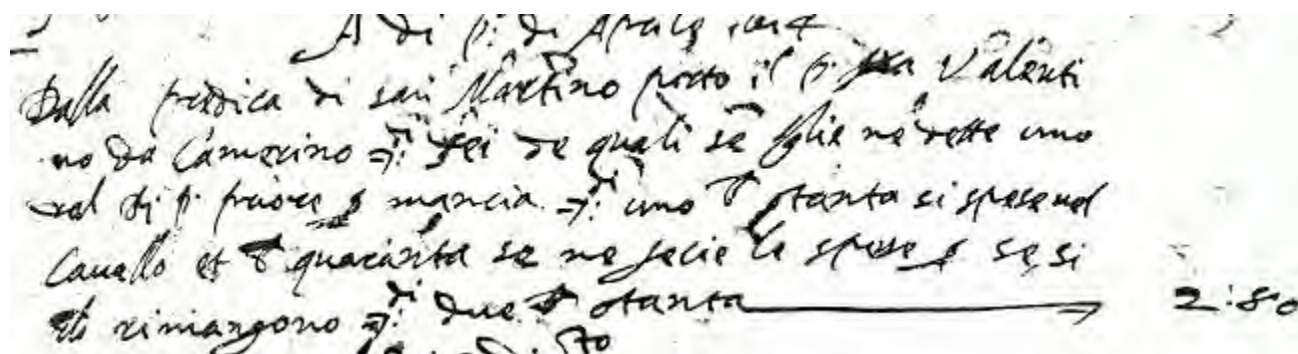 A di p.º di Aprile 1614
Dalla predica di san Martino porto il p. fra Valenti
no da Camerino di sei de quali se glie ne dette uno
del di p. priore p mancia di uno b otanta si spese nel
Cavallo et b quaranta se ne fecie le spese p se si
che rimangono di due b otanta 2:80